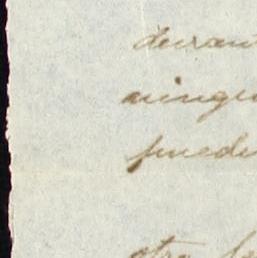 duran
ningu
puede
otro